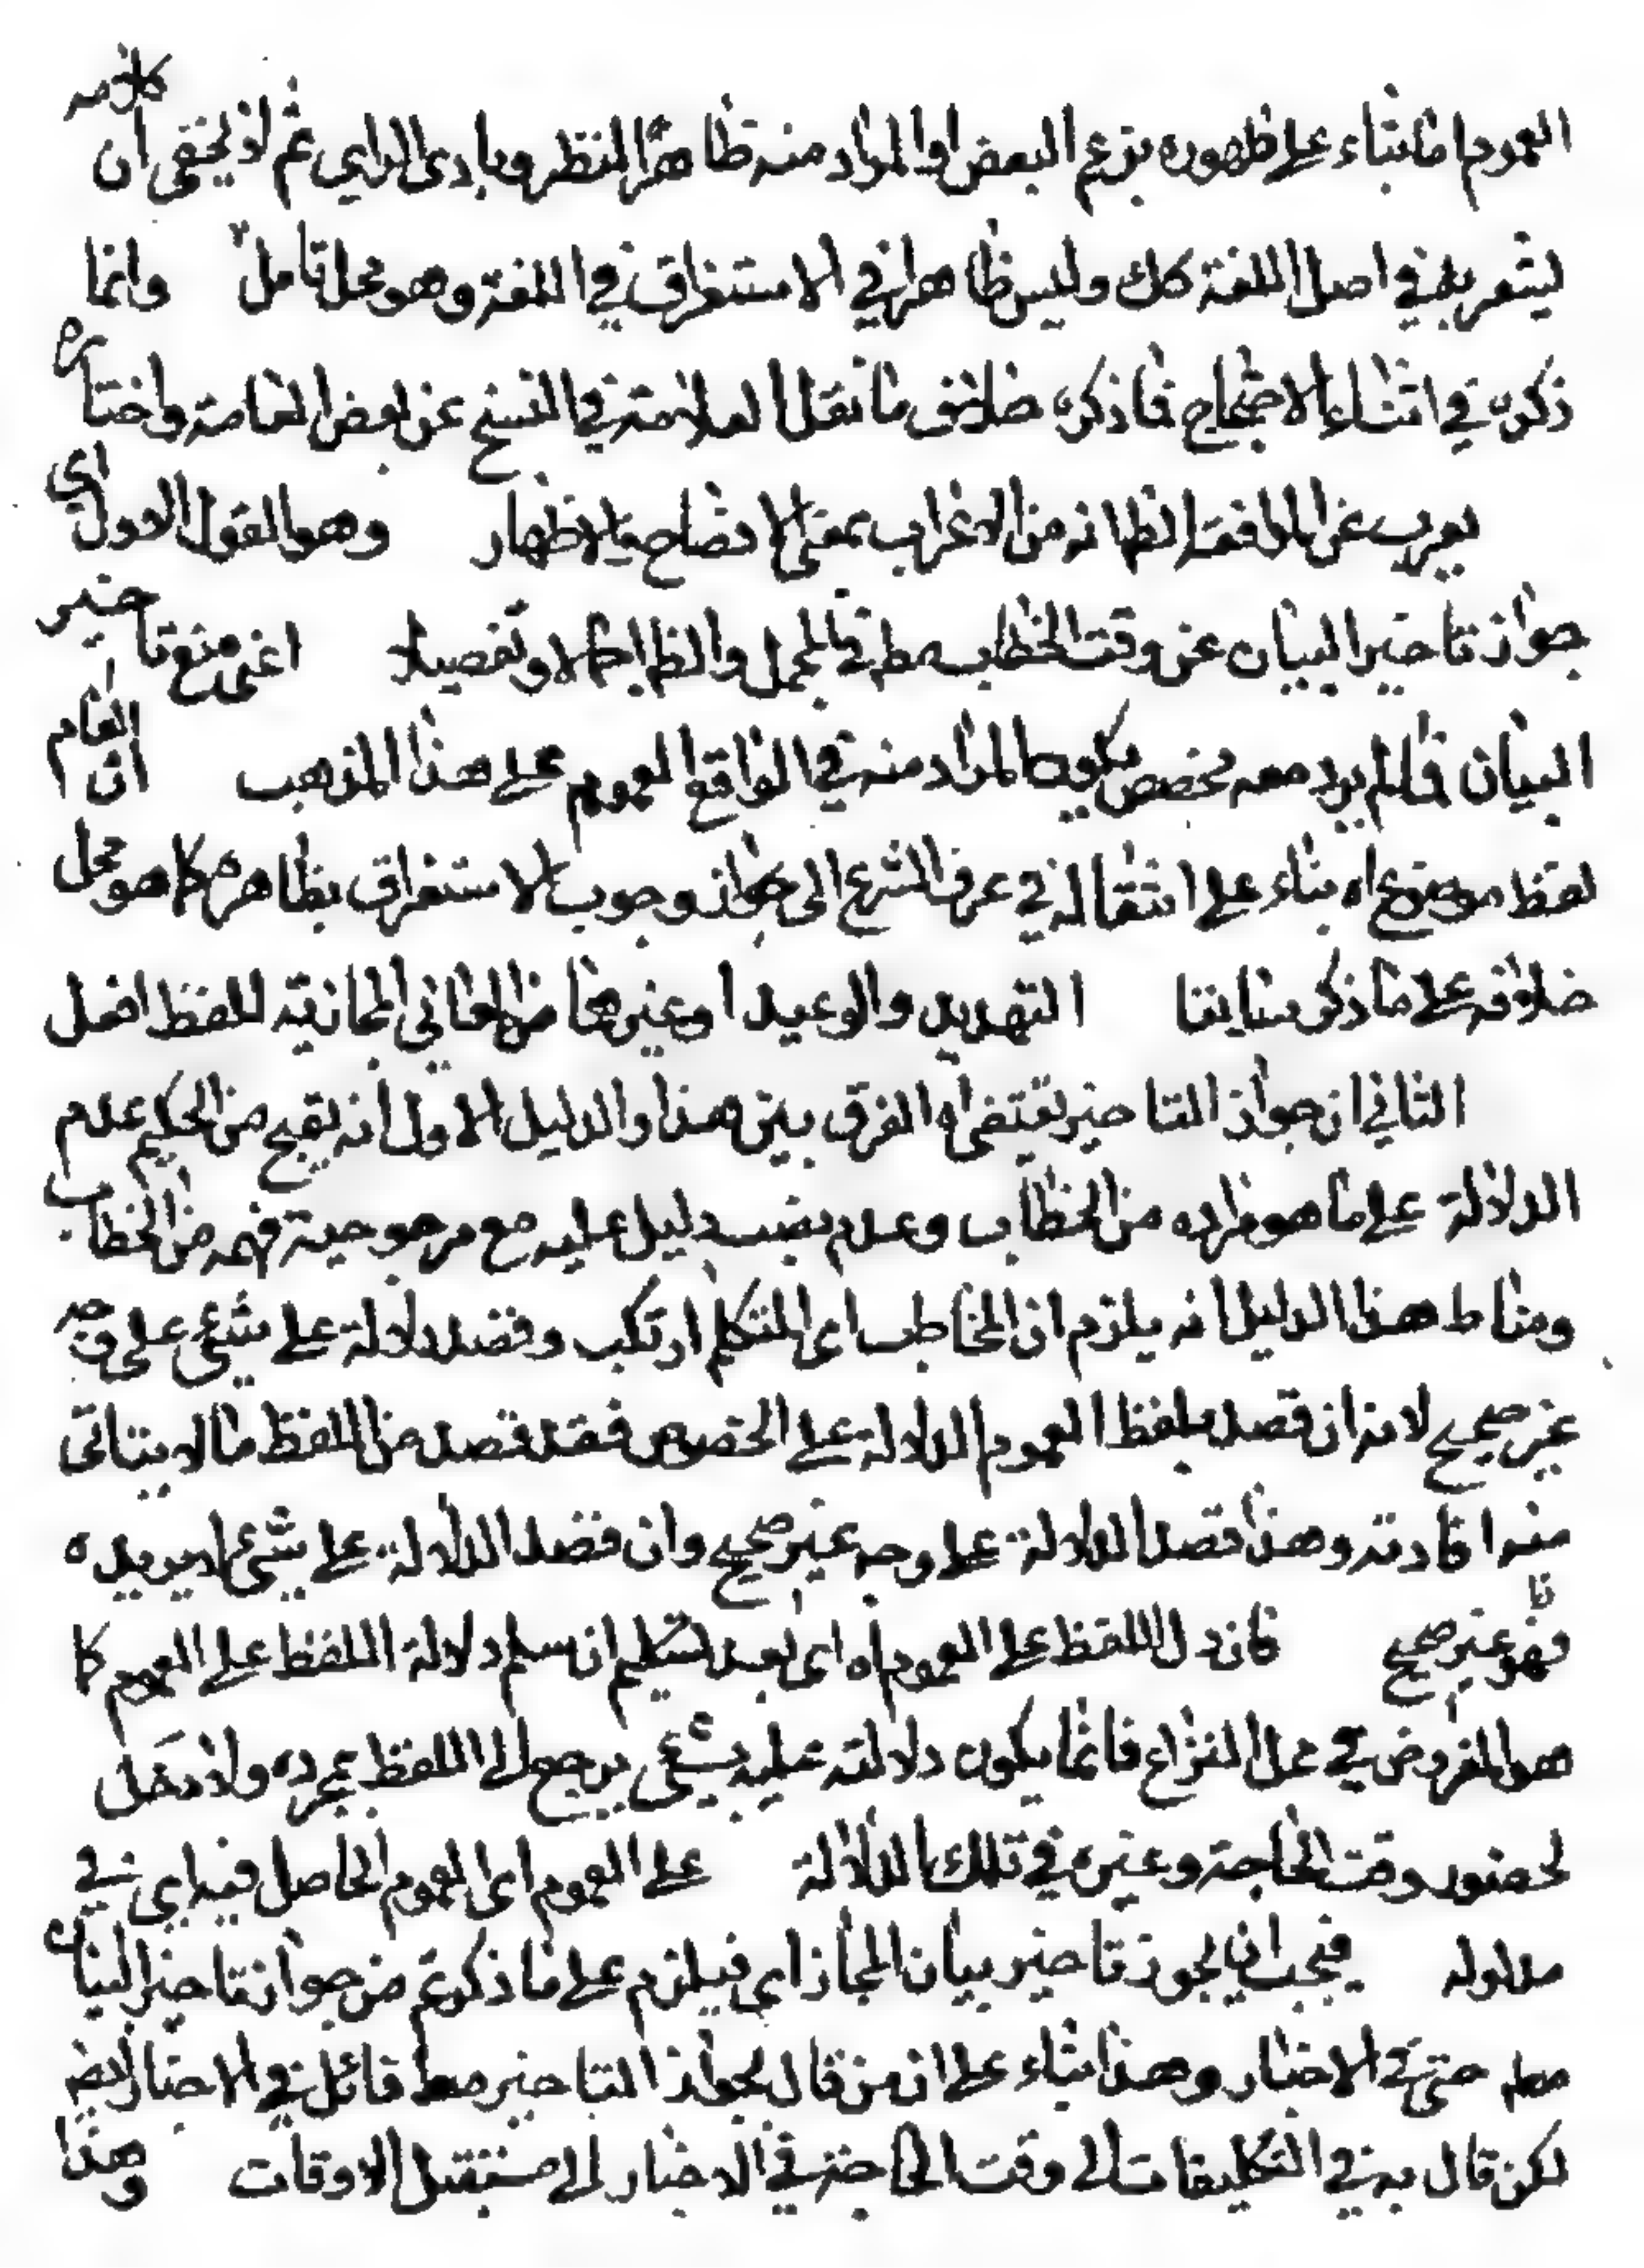 العموم اما بناء على ظهوره بزعم البعض او المراد منه ظاهر النظر وبادى الراي ثم لا يخفى ان كلامه
يشعر بانه في اصل اللغة كك وليس ظاهرا في الاستغراق في اللغة وهو محل تامل وانما
ذكره في اثناء الاحتجاج فما ذكره خلاف ما نقل العلامة في النسخ عن بعض العامة واختاره
يعرب عن الموافقة الظانه من الاعراب بمعنى الافصاح والاظهار وهو القول الاول اي
جواز تاخير البيان عن وقت الخطاب مط في المجمل والظ اجمالا وتفصيلا اعنى منع تاخير
البيان فما لم يرد معه مخصص يكون المراد منه في الواقع العموم على هذا المذهب ان العام
لفظ موضوع اه بناء على انتقاله في عرف الشرع الى وجوب الاستغراق بظاهره كما هو محل
خلافه على ما ذكر سابقا التهديد والوعيد او غيرها من المعاني المجازية للفظ افعل
الثاني ان جواز التاخير يقتضى اه الفرق بين هذا والدليل الاول انه يقبح من الحكيم عدم
الدلالة على ما هو مراده من الخطاب وعدم نصب دليل عليه مع مرجوحية فهمه من الخطاب
ومناط هذا الدليل انه يلزم ان المخاطب اى المتكلم ارتكب وقصد دلالة على شئ على وجه
غير صحيح لانه ان قصد بلفظ العموم الدلالة على الخصوص فقد قصد من اللفظ ما لا يتاتى
منه افادته وهذا قصد الدلالة على وجه غير صحيح وان قصد الدلالة على شئ لا يريده
فهو غير صحيح فان دل اللفظ على العموم اه اى بعد تسليم ان سلم دلالة اللفظ على العموم كما
هو المفروض في محل النزاع فانما يكون دلالته عليه بشئ يرجع الى اللفظ بمجرده ولا دخل
لحضور وقت الحاجة وغيره في تلك الدلالة على العموم اى العموم الحاصل فيه اي في
مدلوله فيجب ان يجوز تاخير بيان المجاز اي فيلزم على ما ذكرتم من جواز تاخير البيان
مط حتى في الاخبار وهذا بناء على ان من قال بجواز التاخير مط قائل في الاخبار ايضا
لكن قال به في التكليفات الى وقت الحاجة في الاخبار الى مستقبل الاوقات وهذا